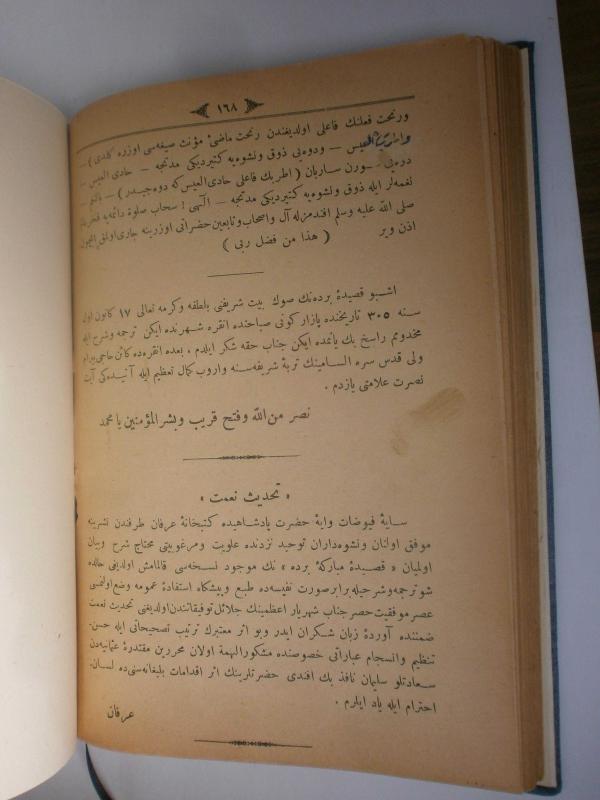 ١٦٨
ورنحت فعلنك فاعلی اولدیغندن رنحت ماضئ مؤنث صیغه‌سی اوزره کلدی ) —
العیس — ودوه‌یی ذوق ونشوه‌یه کتیردیکی مدتجه — حادی العیس —
دوه‌یی ساربان ( اطربك فاعلی حادی العیس که دوه‌جیدر ) —
نغمه‌لر ایله ذوق ونشوه‌یه کتیردیکی مدتجه — الٓهی ! سحاب صلوة دائمه‌یه
صلی الله علیه وسلم افندمزله آل واصحاب وتابعین حضراتی اوزرینه جاری اولمق ایچون
اذن ویر ( هذا من فضل ربی )
اشبو قصیدۀ برده‌نك صوك بیت شریفنی بلطفه وکرمه تعالی ١٧ کانون اول
سنه ٣٠٥ تاریخنده پازار کونی صباحنده انقره شهرنده ایکن ترجمه وشرح ایله
مخدومم راسخ بك یانمده ایکن جناب حقه شکر ایلدم ، بعده انقره‌ده کائن حاجی بیرام
ولی قدس سره السامینك تربۀ شریفه‌سنه واروب کمال تعظیم ایله آتیده‌کی آیت
نصرت علامتی یازدم .
نصر من الله وفتح قریب وبشر المؤمنین یا محمد
« تحدیث نعمت »
سایۀ فیوضات وایۀ حضرت پادشاهیده کتبخانۀ عرفان طرفندن نشرینه
موفق اولنان ونشوه‌داران توحید نزدنده علویت ومرغوبیتی محتاج شرح وبیان
اولمیان « قصیدۀ مبارکۀ برده » نك موجود نسخه‌سی قالمامش اولدیغی حالده
شو ترجمه وشرحیله برابر صورت نفیسه‌ده طبع وپیشکاه استفادۀ عمومه وضع اولنمسی
عصر موفقیت حصر جناب شهریار اعظمینك جلائل توفیقاتندن اولدیغنی تحدیث نعمت
ضمننده آوردۀ زبان شکران ایدر وبو اثر معتبرك ترتیب تصحیحاتی ایله حسن
تنظیم وانسجام عباراتی خصوصنده مشکور الهمة اولان محررین مقتدرۀ عثمانیه‌دن
سعادتلو سلیمان نافذ بك افندی حضرتلرینك اثر اقدامات بلیغانه‌سنی ده لسان
احترام ایله یاد ایلرم .
عرفان